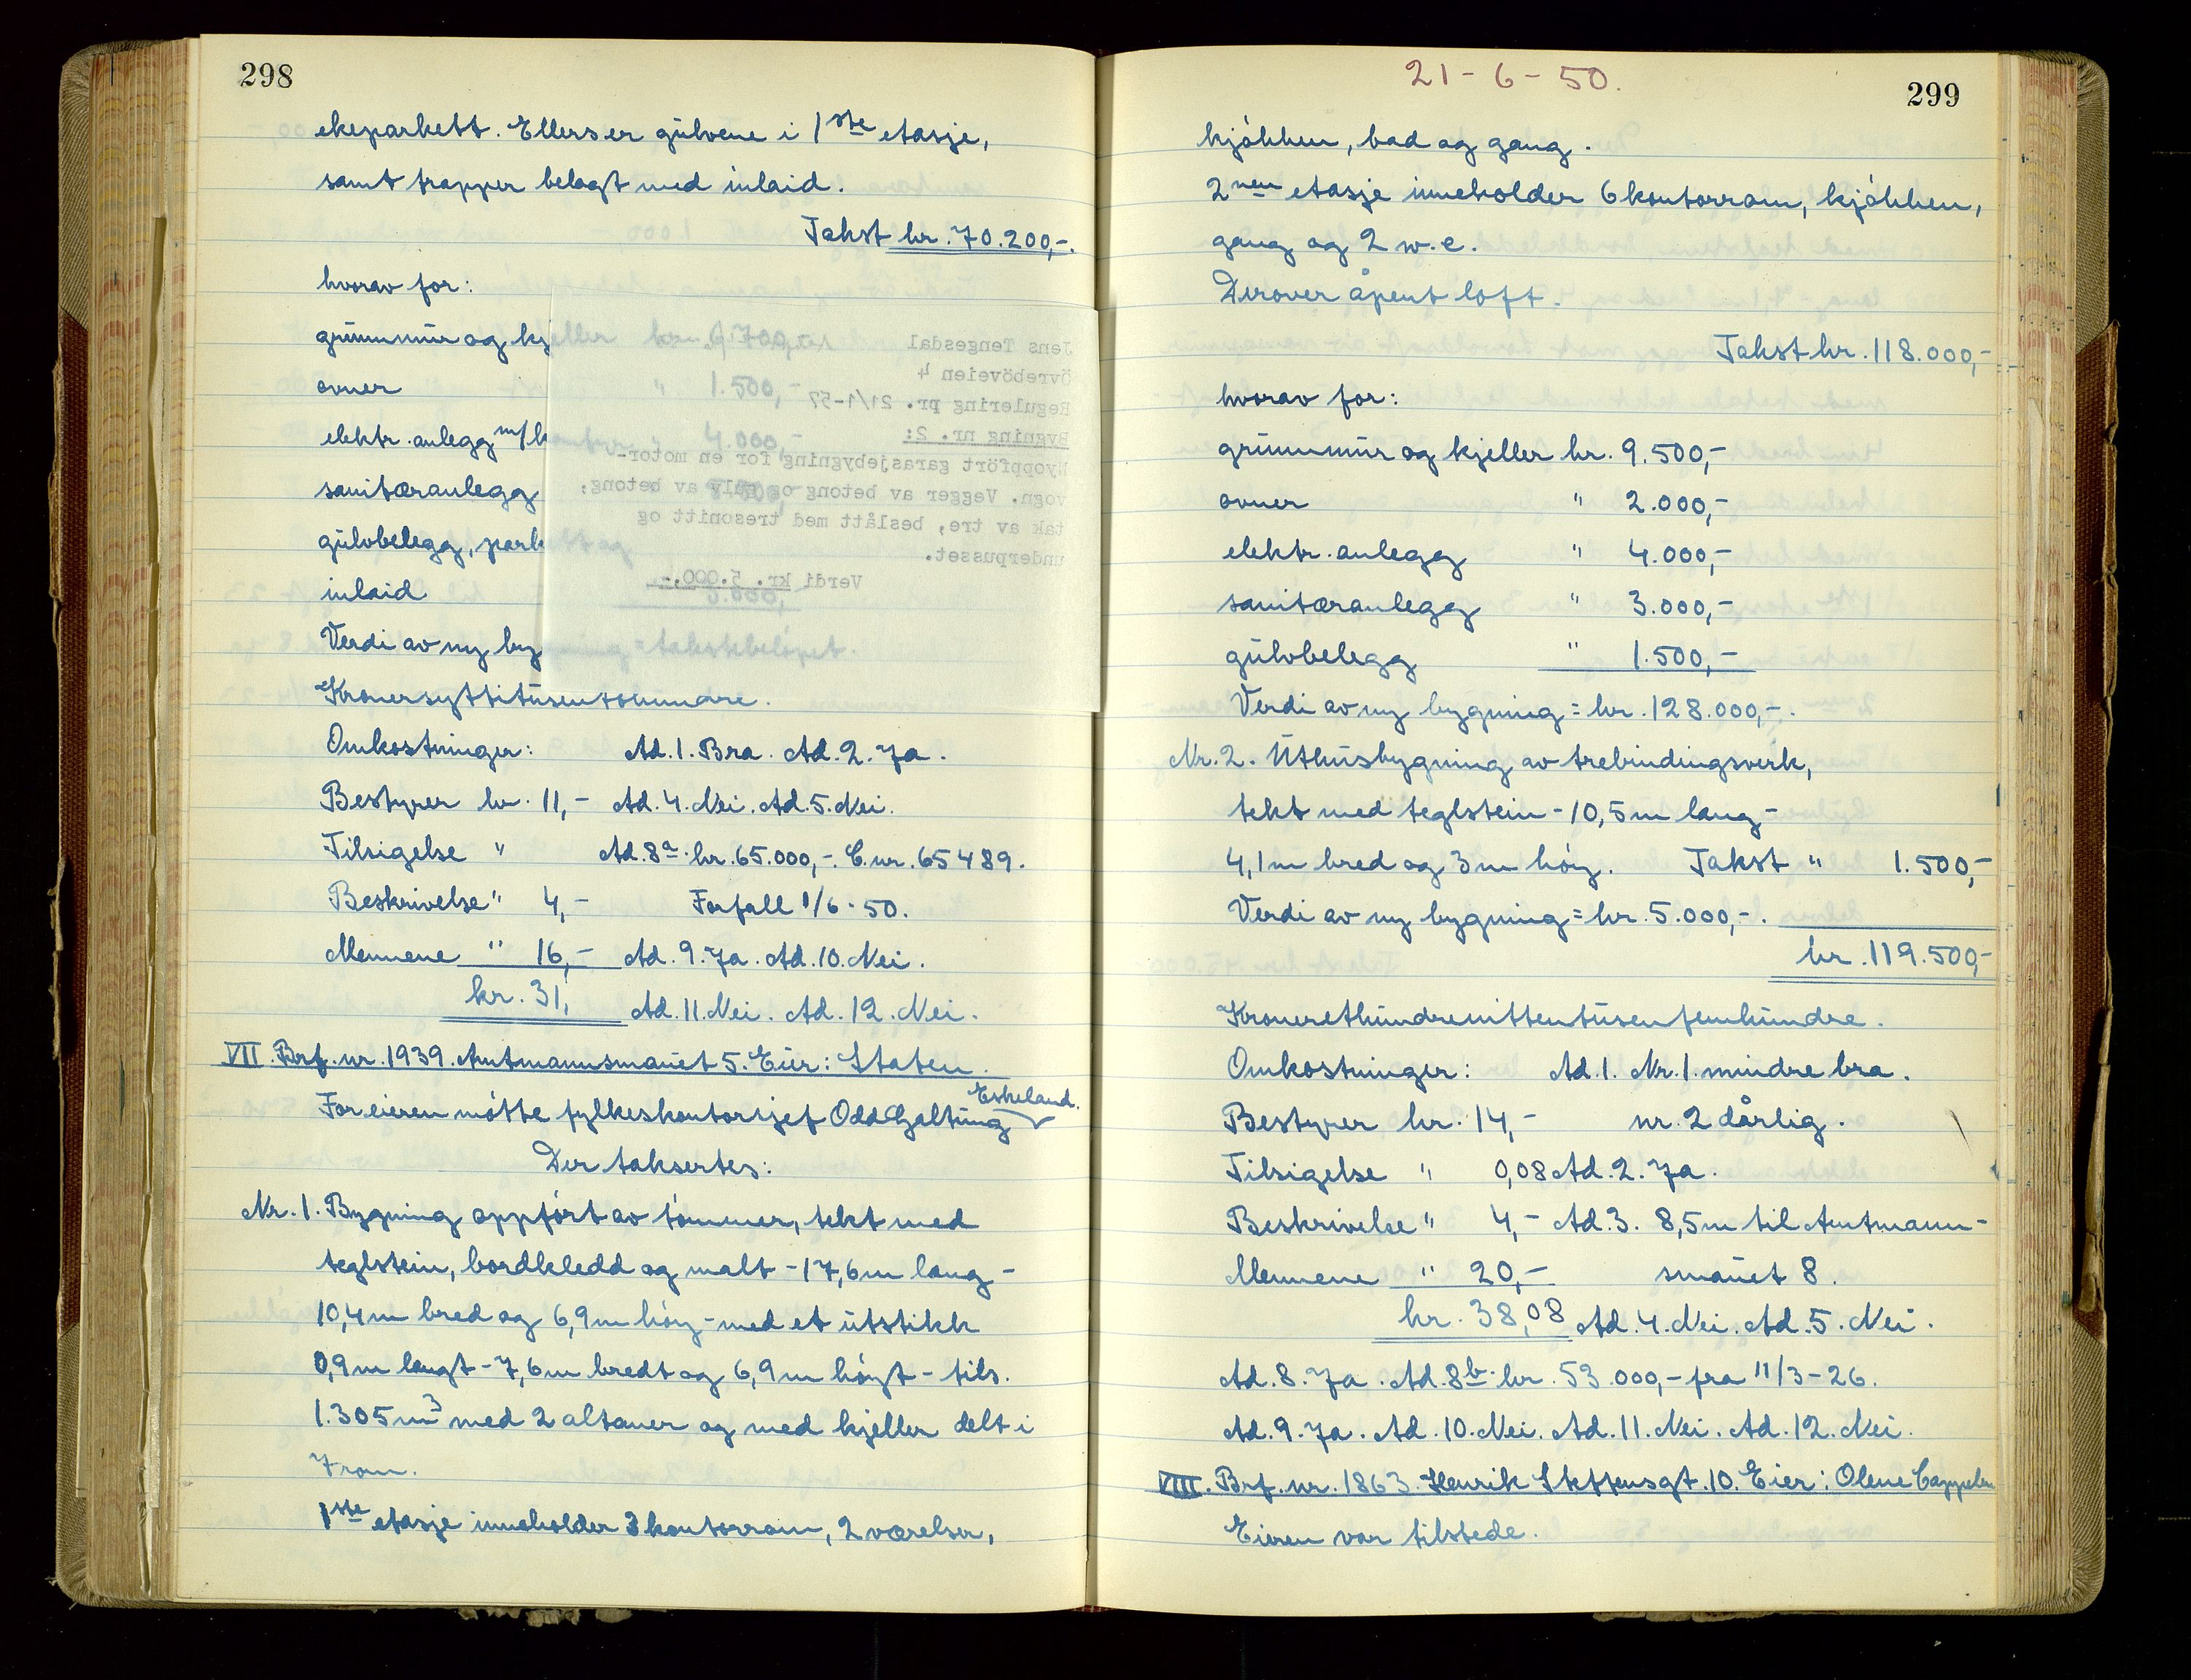 298
ekeparkett. Ellers er gulvene i 1ste etasje,
samt trapper belagt med inlaid.
Takst kr. 70.200,-.
hvorav for:
grunnmur og kjeller kr. 6.700,-
ovner " 1.500,-
elektr. anlegg m/k 4.000,-
sanitæranlegg
gulvbelegg, park
inlaid
Verdi av ny bygning = takstbeløpet.
Kronersyttitusentohundre.
Jens Tengesdal
Övreböveien 4
Regulering pr. 21/1-57
Bygning nr. 2:
Nyoppfört garasjebygning for en motor-
vogn. Vegger av betong og gulv av betong,
tak av tre, beslått med tresonitt og
underpusset.
Verdi kr. 5.000.-.
Omkostninger: Ad. 1. Bra. Ad. 2. Ja.
Bestyrer kr. 11,- Ad. 4. Nei. Ad. 5. Nei.
Tilsigelse " Ad. 8a. kr. 65.000,-. C.nr. 65489.
Beskrivelse " 4,- Forfall 1/6-50.
Mennene " 16,- Ad. 9. Ja. Ad. 10. Nei.
kr. 31, Ad. 11. Nei. Ad. 12. Nei.
VII. Brf. nr. 1939. Amtmannsmauet 5. Eier: Staten.
Eskeland.
For eieren møtte fylkeskontorsjef Odd Galtung
Der taksertes:
Nr. 1. Bygning oppført av tømmer, tekt med
teglstein, bordkledd og malt - 17,6m lang -
10,4m bred og 6,9m høy - med et utstikk
0,9m langt - 7,6m bredt og 6,9m høyt - tils.
1.305m3 med 2 altaner og med kjeller delt i
7 rom.
1ste etasje inneholder 3 kontorrom, 2 værelser,
21-6-50.
299
kjøkken, bad og gang.
2nen etasje inneholder 6 kontorrom, kjøkken,
gang og 2 w.c.
Derover åpent loft.
Takst kr. 118.000,-
hvorav for:
grunnmur og kjeller kr. 9.500,-
ovner " 2.000,-
elektr. anlegg " 4.000,-
sanitæranlegg " 3.000,-
gulvbelegg " 1.500,-
Verdi av ny bygning = kr. 128.000,-.
Nr. 2. Uthusbygning av trebindingsverk,
tekt med teglstein - 10,5m lang -
4,1m bred og 3m høy. Takst " 1.500,-
Verdi av ny bygning = kr. 5.000,-.
kr. 119.500,-
Kroneretthundrenittentusenfemhundre.
Omkostninger: Ad. 1. Nr. 1. mindre bra.
Bestyrer kr. 14,- nr. 2 dårlig.
Tilsigelse " 0,08 Ad. 2. Ja.
Beskrivelse " 4,- Ad. 3. 8,5m til Amtmann-
Mennene " 20,- smauet 8.
kr. 38,08 Ad. 4. Nei. Ad. 5. Nei.
Ad. 8. Ja. Ad. 8b. kr. 53.000,- fra 11/3-26.
Ad. 9. Ja. Ad. 10. Nei. Ad. 11. Nei. Ad. 12. Nei.
VIII. Brf. nr. 1863. Henrik Steffensgt. 10. Eier: Olene Cappelen
Eieren var tilstede.